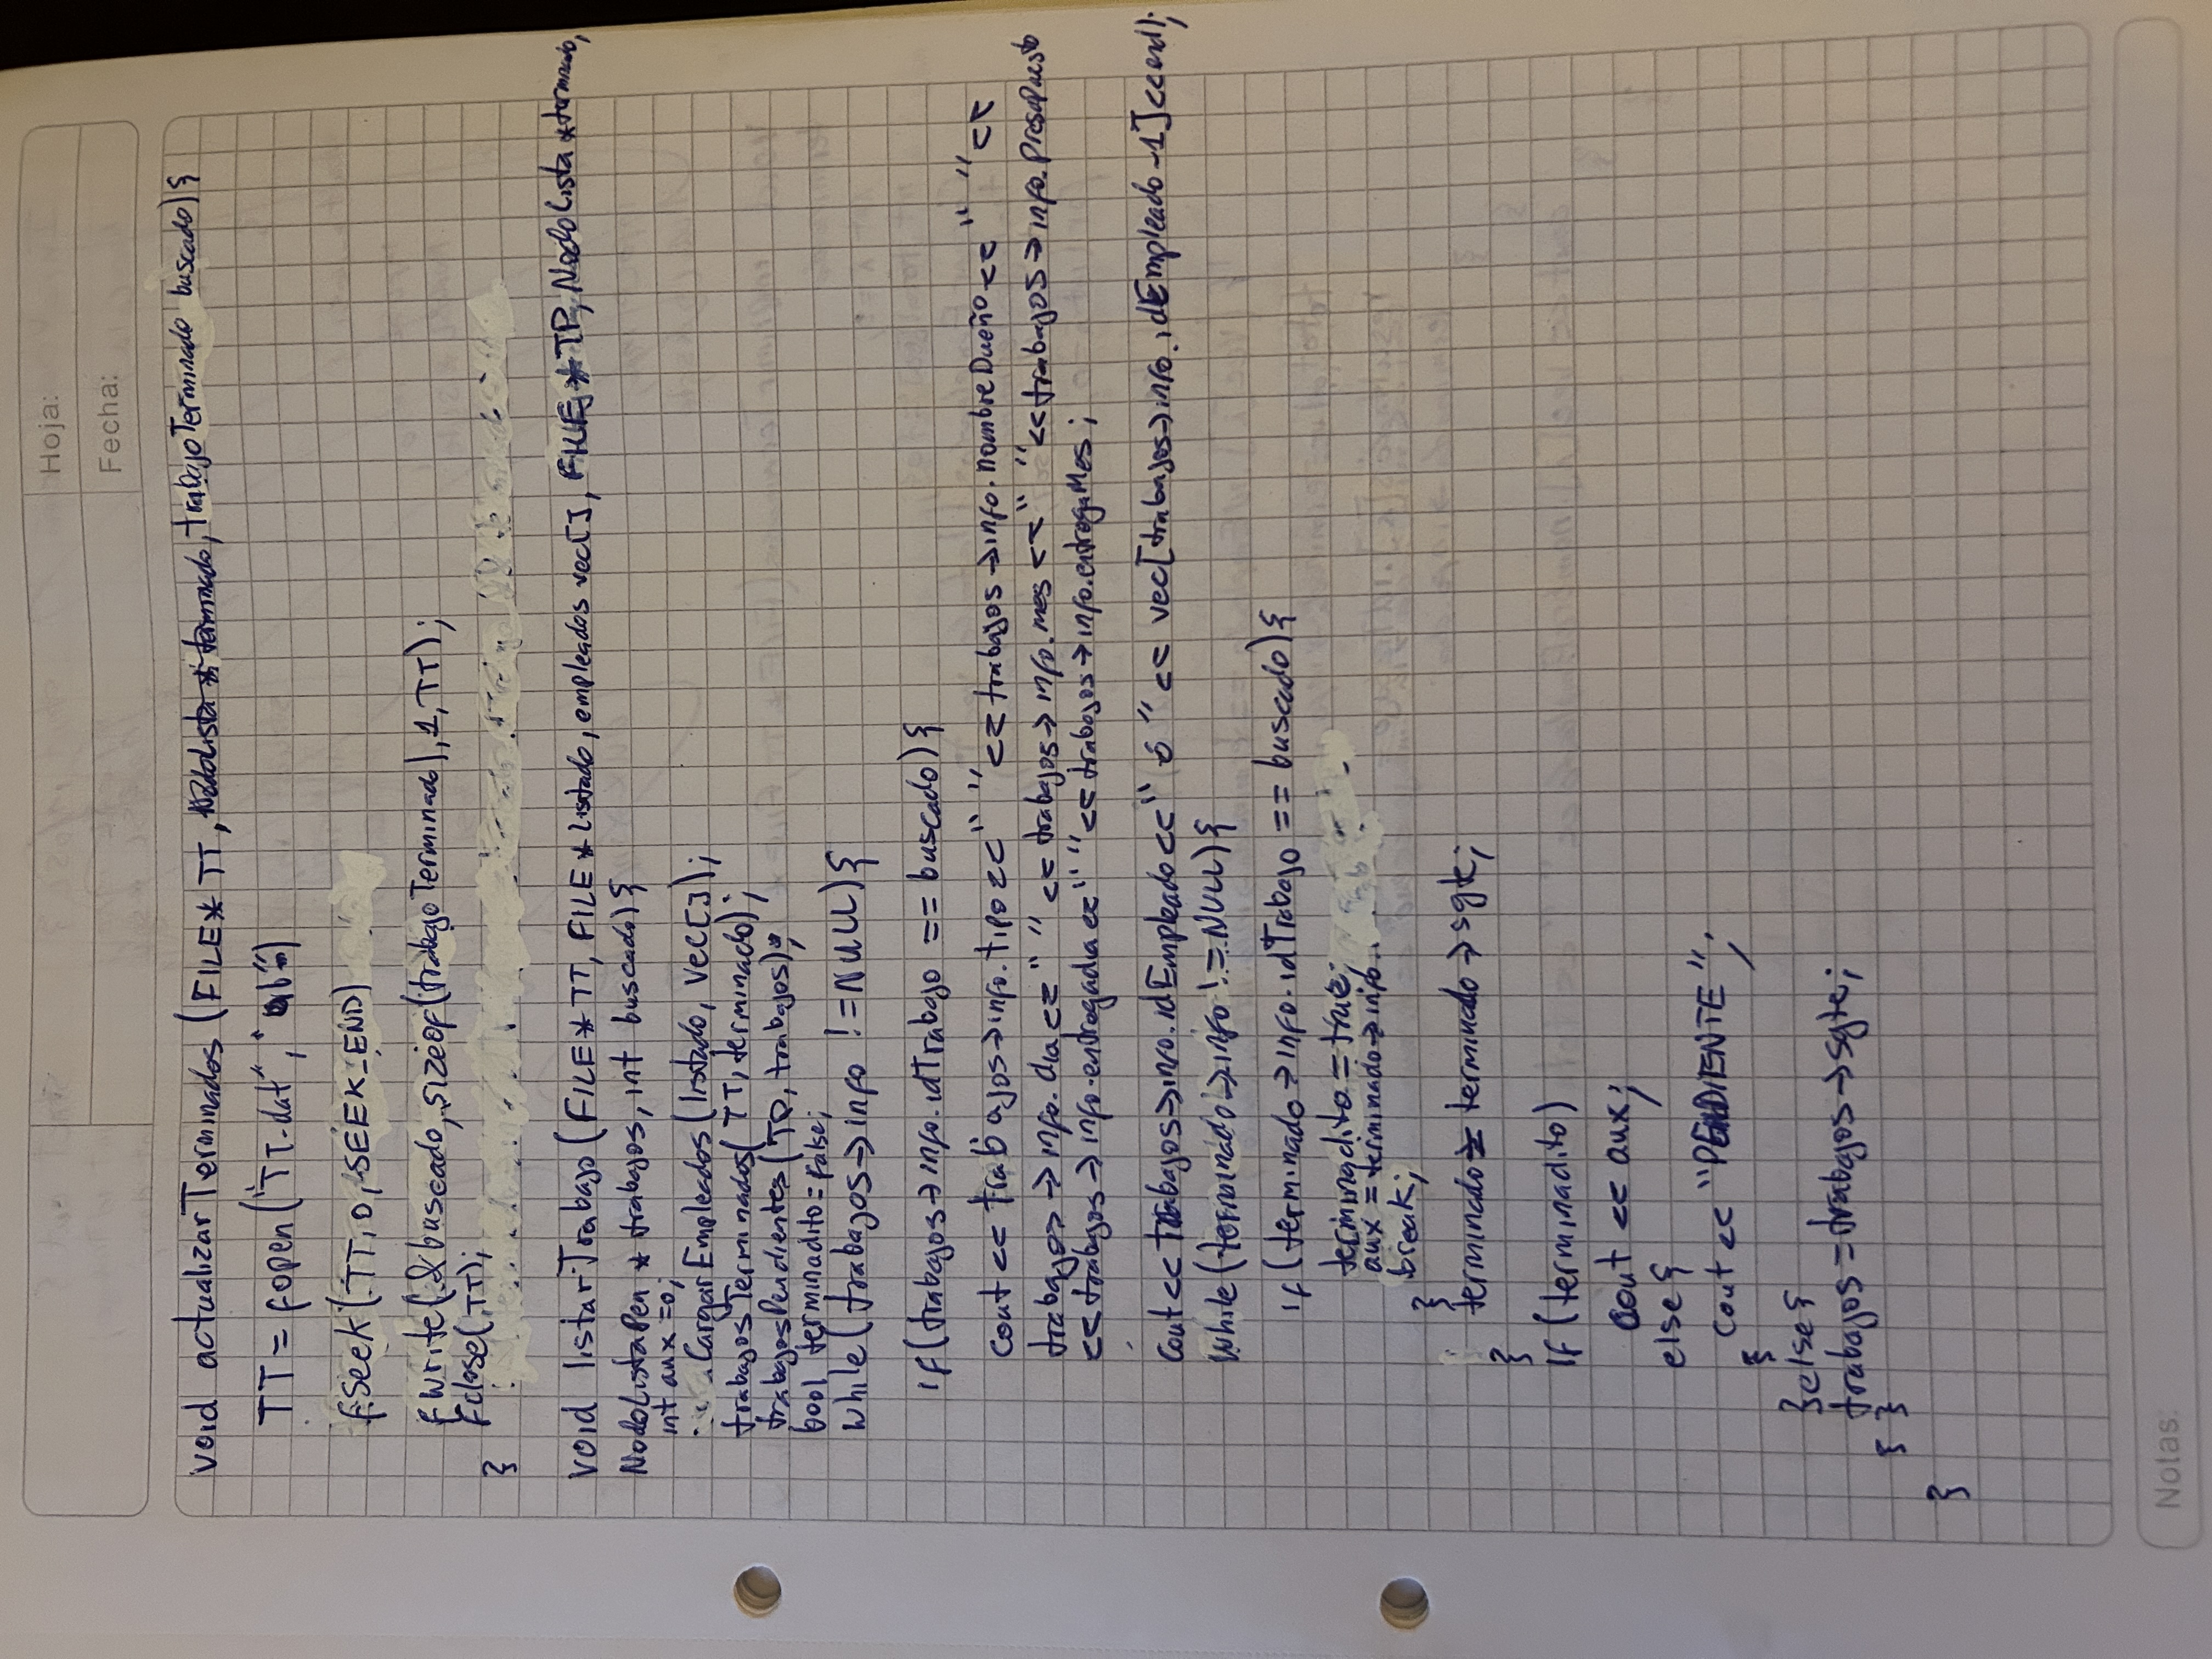 Hoja:
Fecha:
void actualizarTerminados (FILE* TT, NodoLista * terminado, trabajoTerminado buscado){
TT = fopen("TT.dat", "ab")
fseek(TT, 0, SEEK_END)
fwrite(&buscado, sizeof(trabajoTerminado), 1, TT);
fclose(TT);
}
void listarTrabajo (FILE * TT, FILE * listado, empleados vec[], FILE * TP, NodoLista * terminado,
NodoListaPen * trabajos, int buscado){
int aux = 0;
CargarEmpleados (listado, vec[]);
trabajosTerminados( TT, terminado);
trabajosPendientes (TP, trabajos);
bool terminadito = false;
while( trabajos->info != NULL){
if (trabajos->info.idTrabajo == buscado){
cout << trabajos->info.tipo << " " << trabajos->info.nombreDueño << " " <<
trabajos->info.dia << " " << trabajos->info.mes << " " << trabajos->info.presupuesto
<< trabajos->info.entregadia << " " << trabajos->info.entregaMes;
cout << trabajos->info.idEmpleado << " ó " << vec[trabajos->info.idEmpleado-1] << endl;
while (terminado->info != NULL){
if (terminado->info.idTrabajo == buscado){
terminadito = true;
aux = terminado->info.
break;
}
terminado = terminado->sgte;
}
if (terminadito)
cout << aux;
else {
cout << "PENDIENTE";
}
}else{
trabajos = trabajos->sgte;
} }
}
Notas: